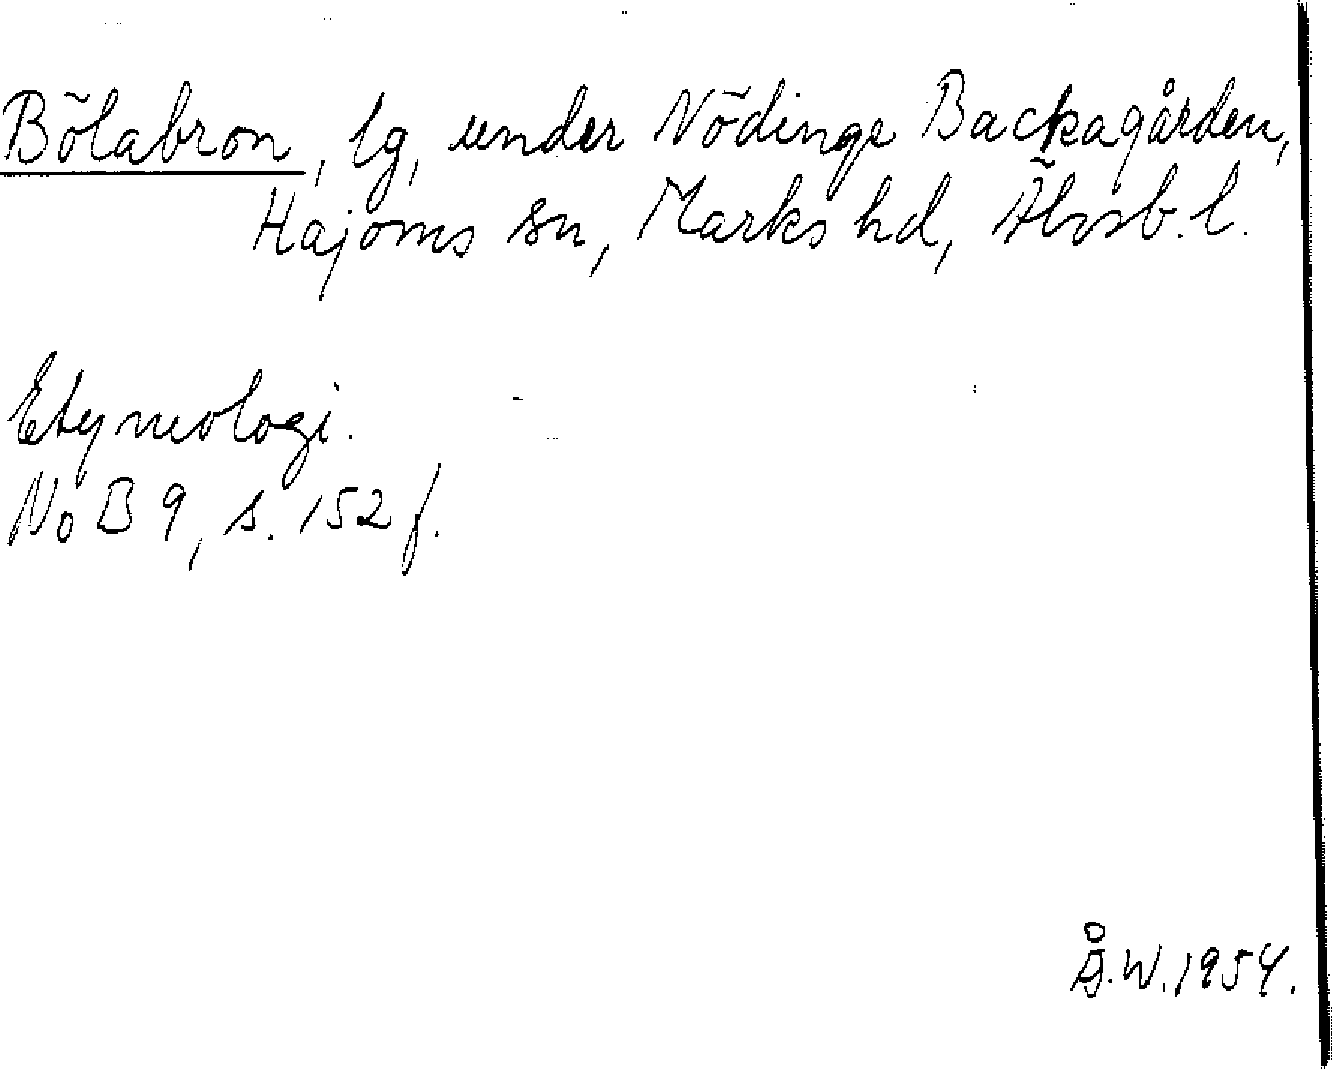 Bõlabron, lg, under Nõdinge Backagården,
Hajoms sn, Marks hd, Ãlvsb. l.
Etymologi.
NoB 9, s. 152 f.
Å.W. 1954.